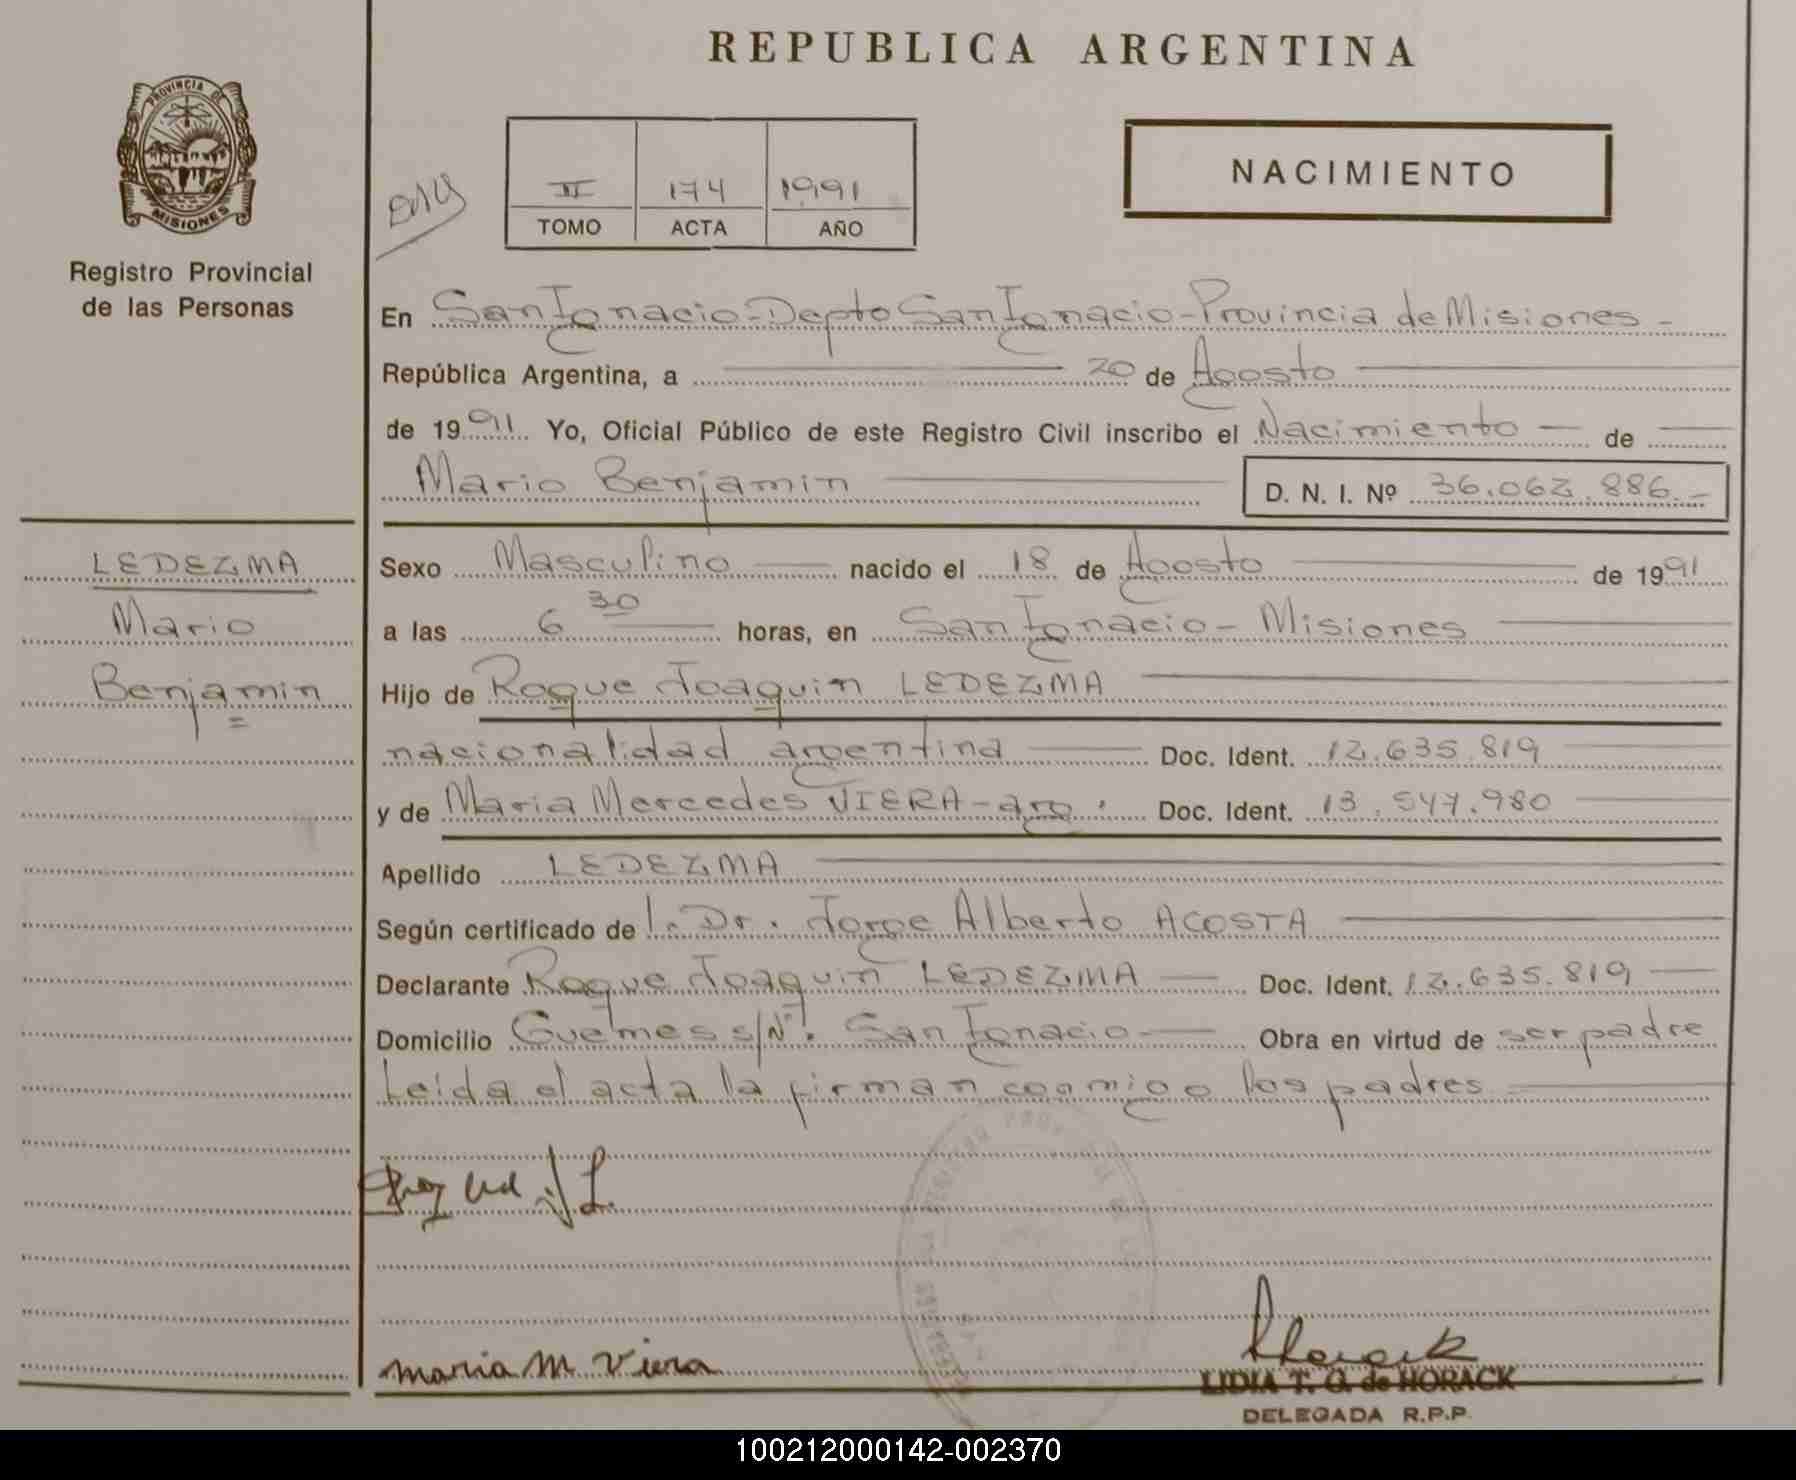 REPUBLICA ARGENTINA
PROVINCIA DE
MISIONES
Registro Provincial
de las Personas
II 174 1991
TOMO ACTA AÑO
NACIMIENTO
En San Ignacio - Depto San Ignacio - Provincia de Misiones -
República Argentina, a 20 de Agosto
de 1991 Yo, Oficial Público de este Registro Civil inscribo el Nacimiento de
Mario Benjamin D. N. I. Nº 36.062.886.-
LEDEZMA
Mario
Benjamin
Sexo Masculino nacido el 18 de Agosto de 1991
a las 6 30 horas, en San Ignacio - Misiones
Hijo de Roque Joaquin LEDEZMA
nacionalidad argentina Doc. Ident. 12.635.819
y de Maria Mercedes VIERA - arg. Doc. Ident. 13.547.980
Apellido LEDEZMA
Según certificado de l. Dr. Jorge Alberto ACOSTA
Declarante Roque Joaquin LEDEZMA Doc. Ident. 12.635.819
Domicilio Guemes s/Nº. San Ignacio Obra en virtud de ser padre
Leida el acta la firman conmigo los padres
Maria M. Viera
LIDIA T. G. de HORACK
DELEGADA R.P.P.
100212000142-002370